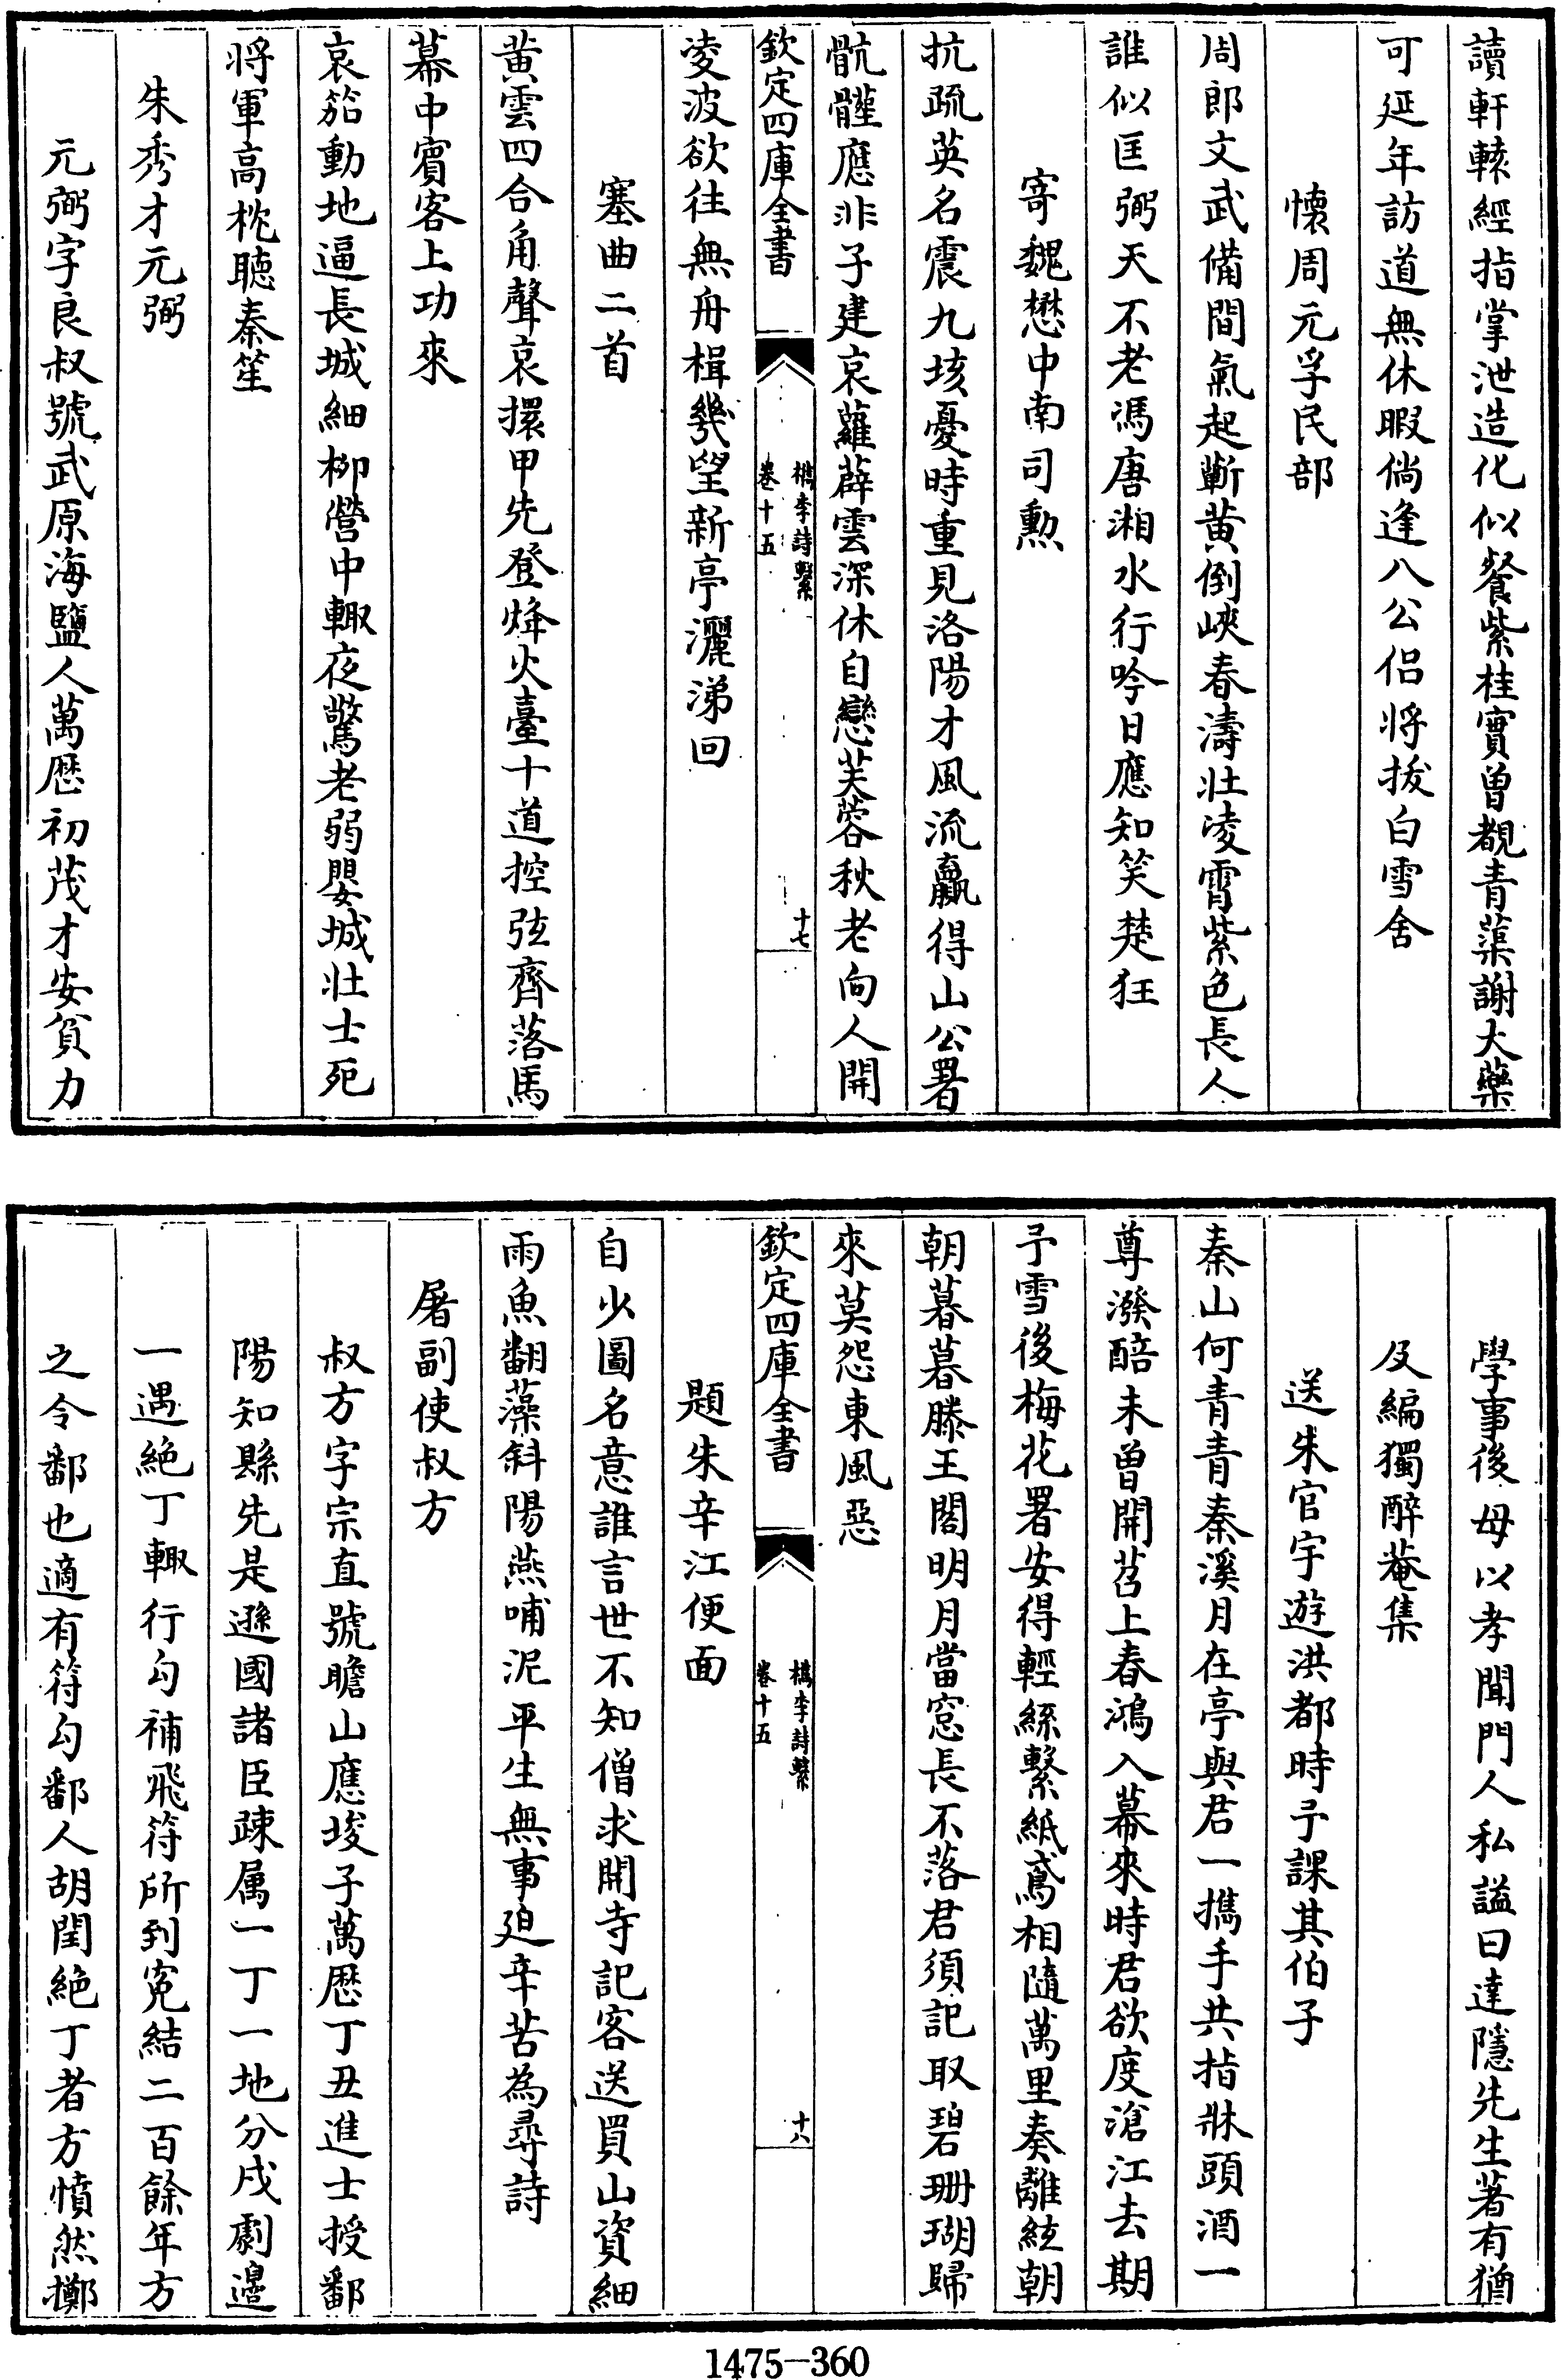 讀軒轅經指掌泄造化似餐紫桂實曾覩青蕖謝大藥
可延年訪道無休暇倘逢八公侣将拔白雪舍
懐周元孚民部
周郎文武備間氣起蘄黄倒峽春濤壯凌霄紫色長人
誰似匡弼天不老馮唐湘水行吟日應知笑楚狂
寄魏懋中南司勲
抗疏英名震九垓憂時重見洛陽才風流贏得山公署
骯髒應非子建哀蘿薜雲深休自戀芙蓉秋老向人開
欽定四庫全書
檇李詩繫
卷十五
十七
凌波欲往無舟楫幾望新亭灑涕回
塞曲二首
黄雲四合角聲哀擐甲先登烽火臺十道控弦齊落馬
幕中賓客上功來
哀笳動地逼長城細柳營中輙夜驚老弱嬰城壯士死
将軍高枕聽秦笙
朱秀才元弼
元弼字良叔號武原海鹽人萬厯初茂才安貧力
學事後母以孝聞門人私謚曰達隱先生著有猶
及編獨醉菴集
送朱官宇遊洪都時予課其伯子
秦山何青青秦溪月在亭與君一攜手共指牀頭酒一
尊潑醅未曾開苕上春鴻入幕來時君欲度滄江去期
予雪後梅花署安得輕絲繫紙鳶相隨萬里奏離絃朝
朝暮暮滕王閣明月當窓長不落君須記取碧珊瑚歸
來莫怨東風惡
欽定四庫全書
檇李詩繫
卷十五
十八
題朱辛江便面
自少圖名意誰言世不知僧求開寺記客送買山資細
雨魚翻藻斜陽燕哺泥平生無事廹辛苦為尋詩
屠副使叔方
叔方字宗直號瞻山應埈子萬厯丁丑進士授鄱
陽知縣先是遜國諸臣疎属一丁一地分戍劇邉
一遇絶丁輙行勾補飛符所到寃結二百餘年方
之令鄱也適有符勾鄱人胡閏絶丁者方憤然擲
1475—360